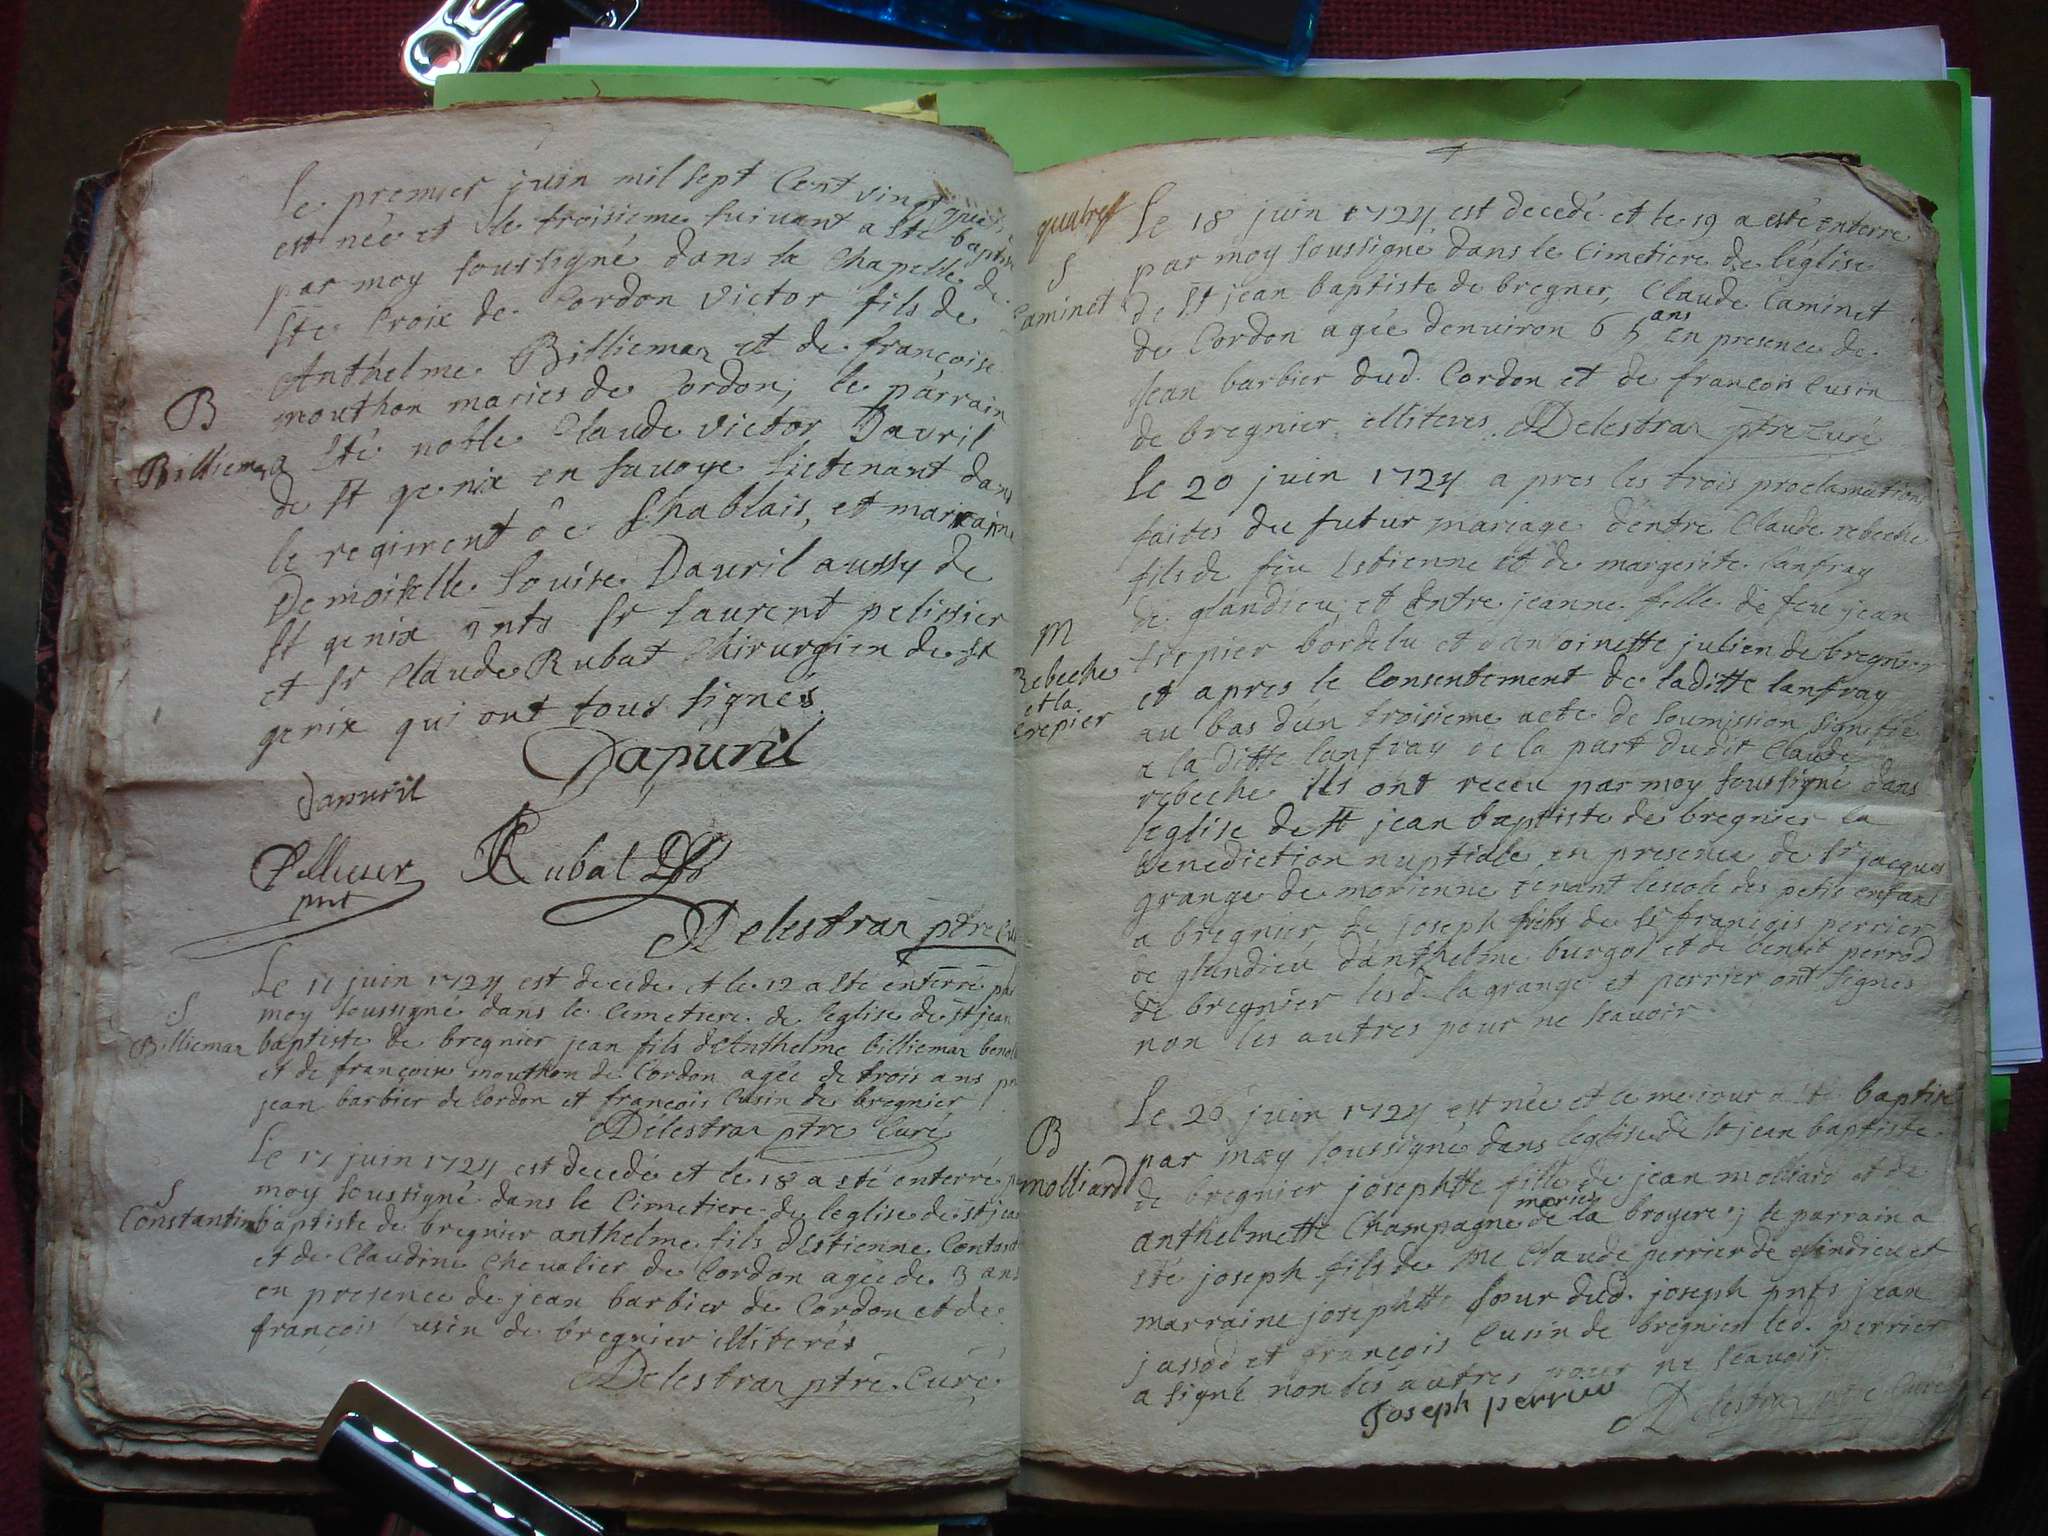 Le premier juin mil sept Cent vingt quatre
est née et le troisieme suivant a sté baptisé
par moy soussigné dans la Chapelle de
Ste Croix de Cordon Victor fils de
Anthelme Billiemaz et de françoise
B
mouthon maries de Cordon, le parrain
Billiemaz
a sté noble Claude victor Davril
de St genix en Savoye lietenant dans
le regiment de Chablais, et marraine
Demoiselle Louise Davril aussy de
St genix pnts Sr Laurent pelissier
et Sr Claude Rubat Chirurgien de St
genix qui ont tous signés
Dapvril
Dapvril
Pellissier Rubat
pnt
Delestraz ptre Curé
Le 11 juin 1724 est decede et le 12 a sté enterré par
S
moy soussigné dans le Cemetiere de leglise de St jean
Billiemaz
baptiste de bregnier jean fils d'Anthelme billiemaz
et de francoise mouthon de Cordon agée de trois ans
jean barbier de Cordon et francois Cusin de bregnier
Delestraz ptre Curé
Le 17 juin 1724 est decedé et le 18 a sté enterré
S
moy soussigné dans le Cimetiere de leglise de St jean
Constantin
baptiste de bregnier anthelme fils d'Estienne
et de Claudine Chevalier de Cordon agée de 3 ans
en presence de jean barbier de Cordon et de
françois Cusin de bregnier illiterés
Delestraz ptre Curé
Le 18 juin 1724 est decedé et le 19 a esté enterre
S
par moy soussigné dans le Cimetiere de léglise
Caminet
de St jean baptiste de bregner, Claude Caminet
de Cordon agée denviron 65 ans en presence de
jean barbier dud. Cordon et de françois Cusin
de bregnier illiteres Delestraz ptre Curé
Le 20 juin 1724 a pres les trois proclamations
faites du futur mariage d'entre Claude rebeche
fils de feu Estienne et de margerite lanfray
de glandieu et entre jeanne fille de feu jean
M
trepier bordelu et d'antoinette julien de bregnier
Rebeche
et la
trepier
et apres le Consentement de laditte lanfray
au bas d'un troisieme acte de soumission signifié
a la ditte lanfray de la part dudit Claude
rebeche ils ont receu par moy soussigné dans
leglise de St jean baptiste de bregnier la
benediction nuptiale en presence de Sr jacques
grange de morienne tenant lescole des petis enfans
a bregnier de joseph fils de Sr françois perrier
de glandieu d'anthelme burgod et de benoit perrod
de bregnier lesd. la grange et perrier ont signés
non les autres pour ne scavoir.
Le 20 juin 1724 est née et le mesiour a sté baptisé
B
par moy soussigné dans leglise de St jean baptiste
molliard
de bregnier josephtte fille de jean molliard et de
anthelmette Champagne maries de la broyere; le parrain a
sté joseph fils de Me Claude perrier de glandieu et
marraine josephtte soeur dud. joseph pnts jean
jassod et françois Cusin de bregnier led. perrier
a signé non les autres pour ne scavoir.
Joseph perrier
Delestraz ptre Curé